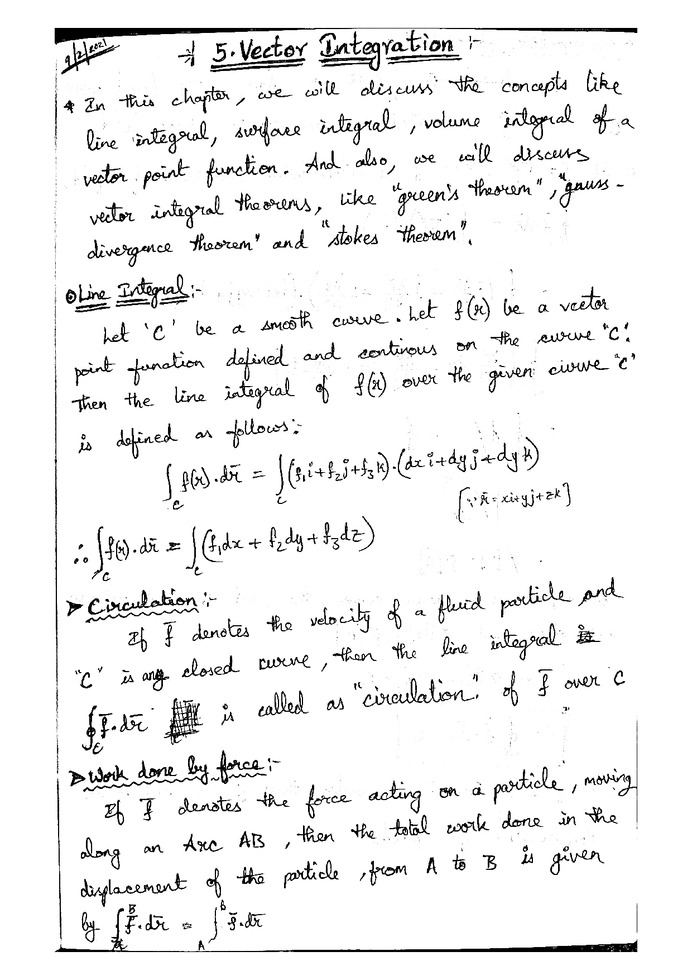 9/2/2021
5. Vector Integration :-
* In this chapter, we will discuss the concepts like
line integral, surface integral, volume integral of a
vector point function. And also, we will discuss
vector integral theorems, like "green's theorem", "gauss-
divergence theorem" and "stokes theorem".
Line Integral :-
Let 'C' be a smooth curve. Let f(r) be a vector
point function defined and continous on the curve "C".
Then the line integral of f(r) over the given curve "C"
is defined as follows:-
∫_C f(r)·dr̄ = ∫_C (f₁i+f₂j+f₃k)·(dx i+dy j+dy k)
[∵ r̄ = xi+yj+zk]
∴ ∫_C f(r)·dr̄ = ∫_C (f₁dx + f₂dy + f₃dz)
➤ Circulation :-
If f̄ denotes the velocity of a fluid particle and
"C" is any closed curve, then the line integral
∮_C f̄·dr̄ is called as "circulation" of f̄ over C
➤ Work done by force :-
If f̄ denotes the force acting on a particle, moving
along an Arc AB, then the total work done in the
displacement of the particle, from A to B is given
by ∫_A^B f̄·dr̄ = ∫_A^B f̄·dr̄